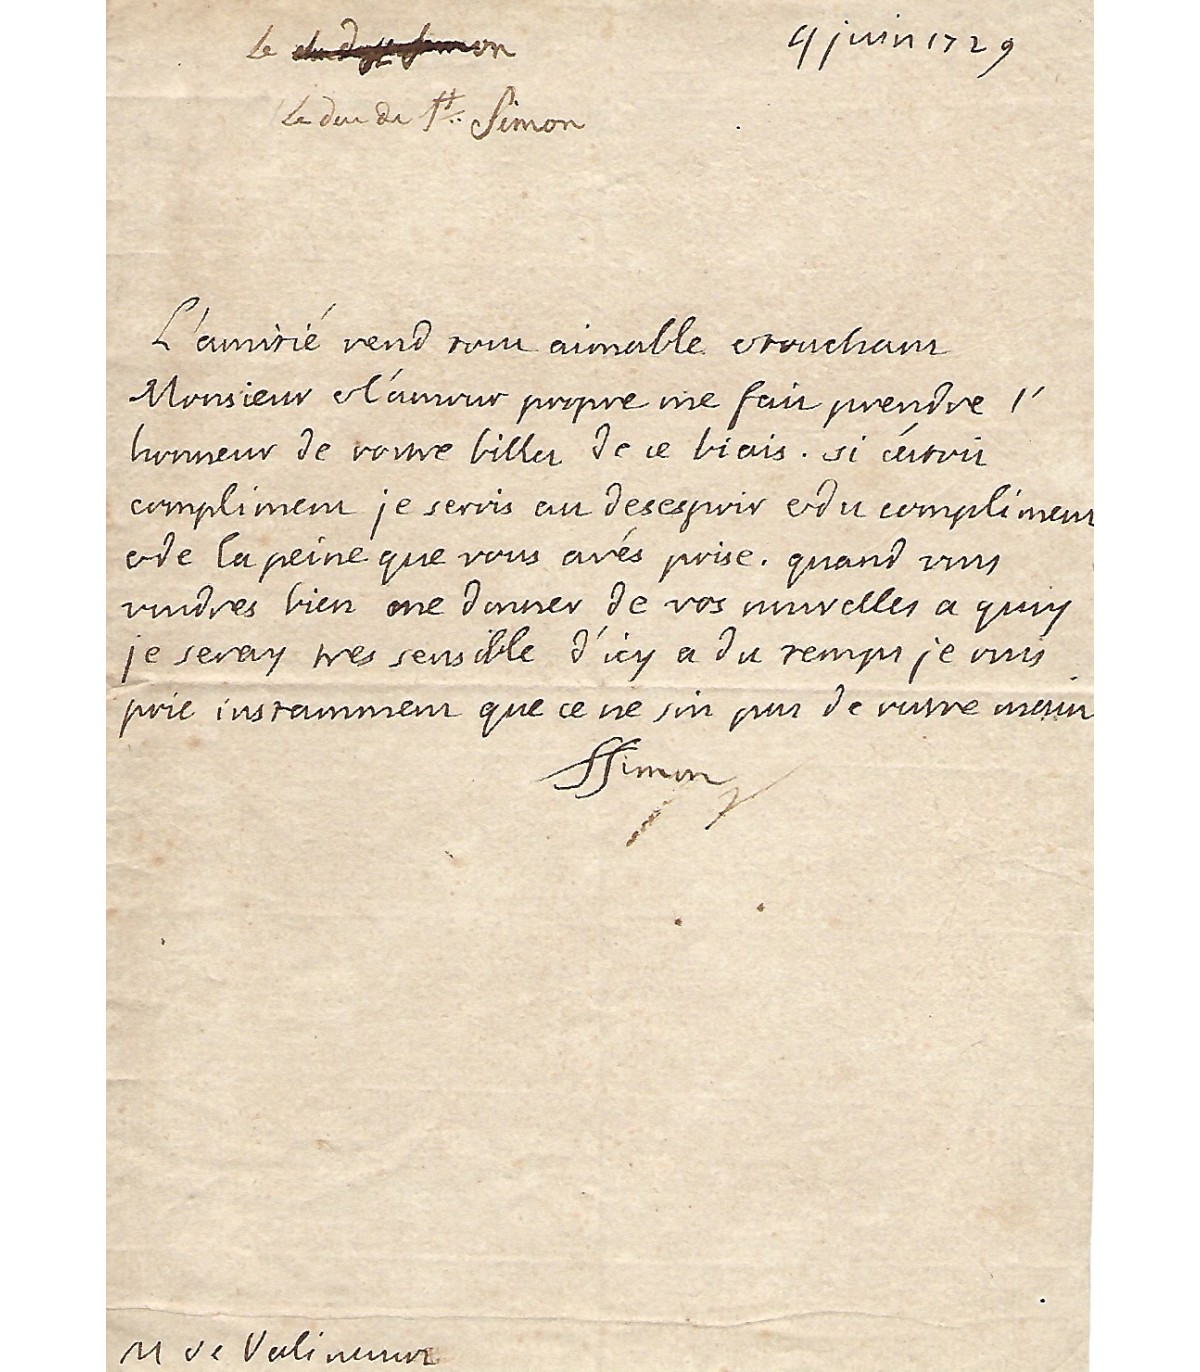 Le
4 juin 1729
Le duc de St. Simon
L'amitié rend tout aimable et touchant
Monsieur et l'amour propre me fait prendre l'
honneur de vostre billet de ce biais. si c'étoit
compliment je serois au desespoir et du compliment
et de la peine que vous avés prise. quand vous
voudres bien me donner de vos nouvelles a quoy
je seray tres sensible d'icy a du temps je vous
prie instamment que ce ne soit pas de vostre main
SSimon
M de Valincour